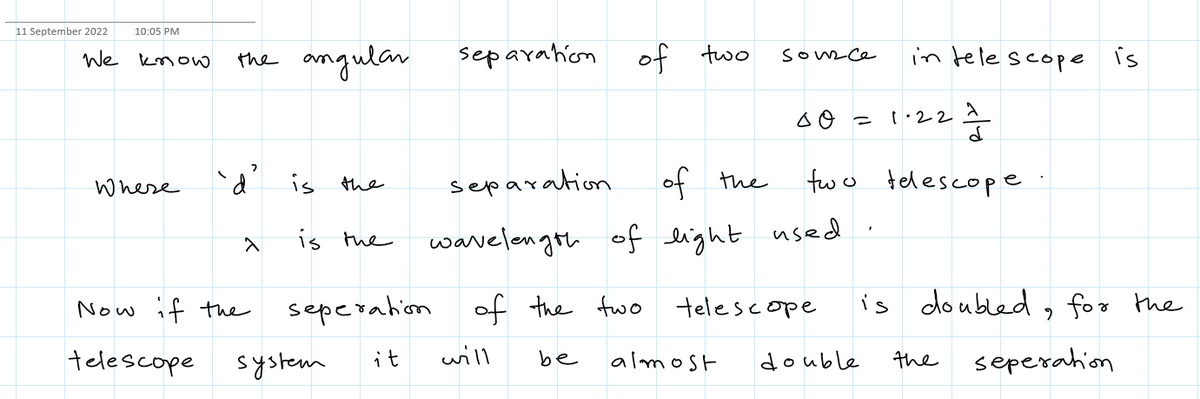 11 September 2022 10:05 PM
We know the angular separation of two source in telescope is
Δθ = 1.22 λ/d
Where 'd' is the separation of the two telescope.
λ is the wavelength of light used.
Now if the seperation of the two telescope is doubled, for the
telescope system it will be almost double the seperation